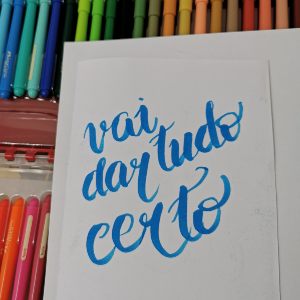 vai
dar tudo
certo